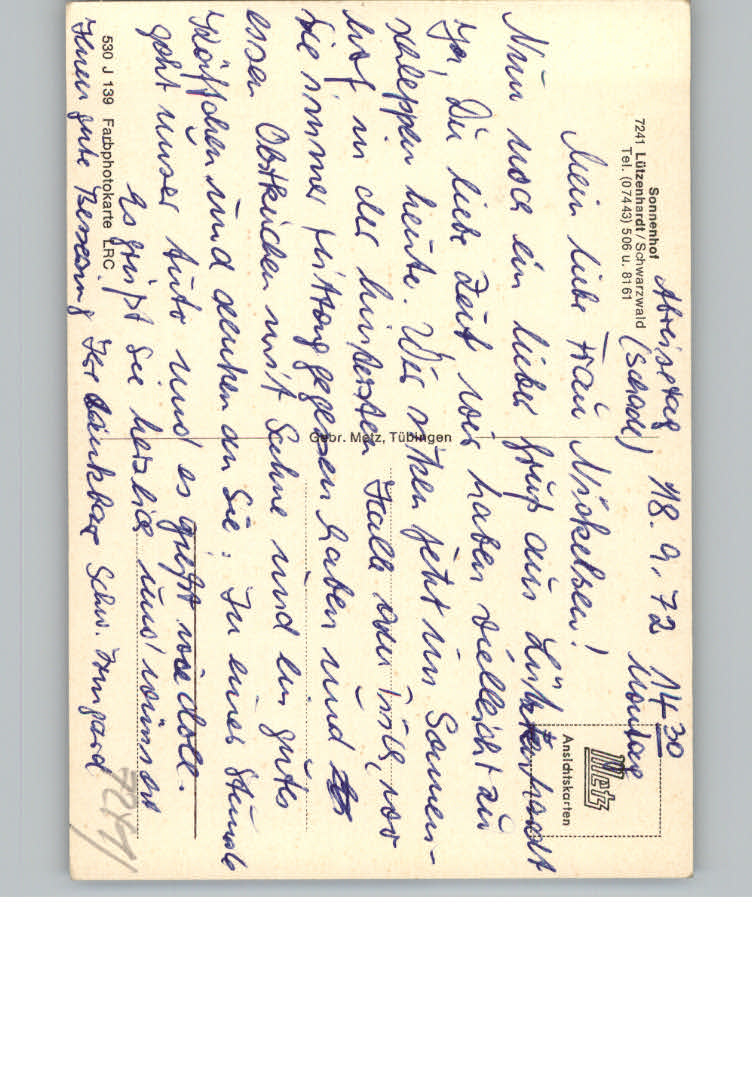 Sonnenhof
7241 Lützenhardt/Schwarzwald
Tel. (07443) 506 u. 8161
Abreisetag 18.9.72 14 30
(Schade) Montag
Metz
Ansichtskarten
Mein liebe Frau Nickelsen!
Nun noch ein lieber Gruß aus Lützenhardt
Ja! Du liebe Zeit wir haben vielleicht zu
schleppen heute. Wir sitzen jetzt im Sonnen-
hof in der hintersten Halle wo
Sie immer Mittag gegessen haben und
essen Obstkuchen mit Sahne und ein gutes
Käffchen und denken an Sie! In einer Stunde
geht unser Auto und es gießt wie doll.
Es grüßt Sie herzlich und wünscht
Ihnen gute Besserung Ihre dankbare Schw. Irmgard
Gebr. Metz, Tübingen
530 J 139 Farbphotokarte LRC